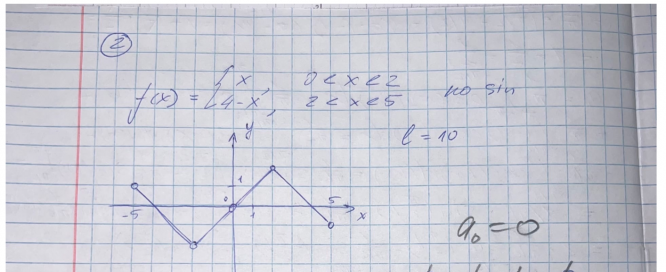 2
f(x) = { x, 0 < x < 2
4-x, 2 < x < 5 по sin
l = 10
y
1
0
-5 1 5 x
a₀ = 0